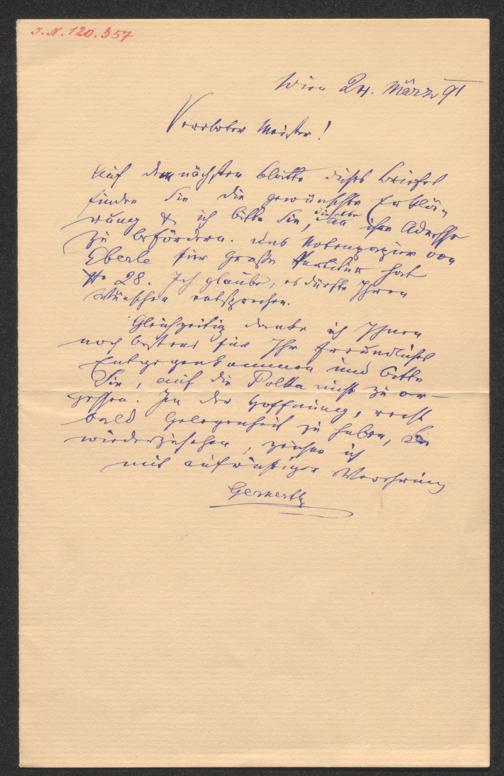 J.N. 120.357
Wien 24. März 91
Verehrter Meister!
Auf dem nächsten Blatte dieses Briefes
finden Sie die gewünschte Erklä-
rung & ich bitte Sie, dieselbe an ihre Adresse
zu befördern. Das Notenpapier von
Eberle für große Partitur hat
No 28. Ich glaube, es dürfte Ihren
Wünschen entsprechen.
Gleichzeitig danke ich Ihnen
noch bestens für Ihr freundliches
Entgegenkommen und bitte
Sie, auf die Polka nicht zu ver-
gessen. In der Hoffnung, recht
bald Gelegenheit zu haben, Sie
wiederzusehen, zeichne ich
mit aufrichtiger Verehrung